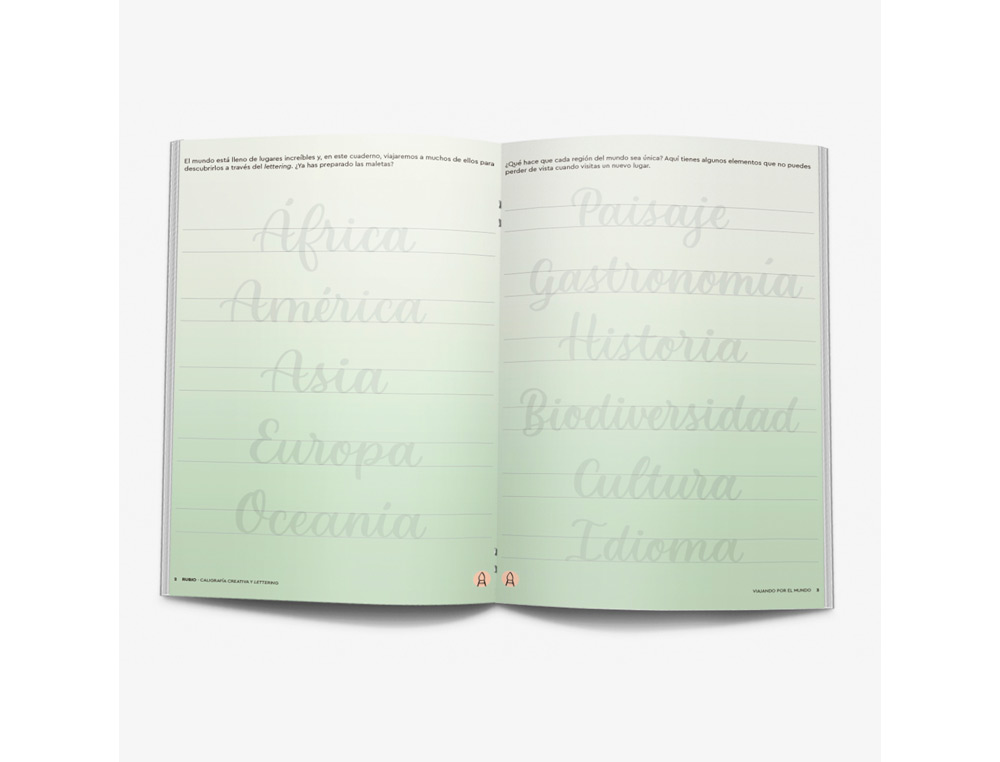 El mundo está lleno de lugares increíbles y, en este cuaderno, viajaremos a muchos de ellos para
descubrirlos a través del lettering. ¿Ya has preparado las maletas?
África
América
Asia
Europa
Oceanía
RUBIO · CALIGRAFÍA CREATIVA Y LETTERING
¿Qué hace que cada región del mundo sea única? Aquí tienes algunos elementos que no puedes
perder de vista cuando visitas un nuevo lugar.
Paisaje
Gastronomía
Historia
Biodiversidad
Cultura
Idioma
VIAJANDO POR EL MUNDO